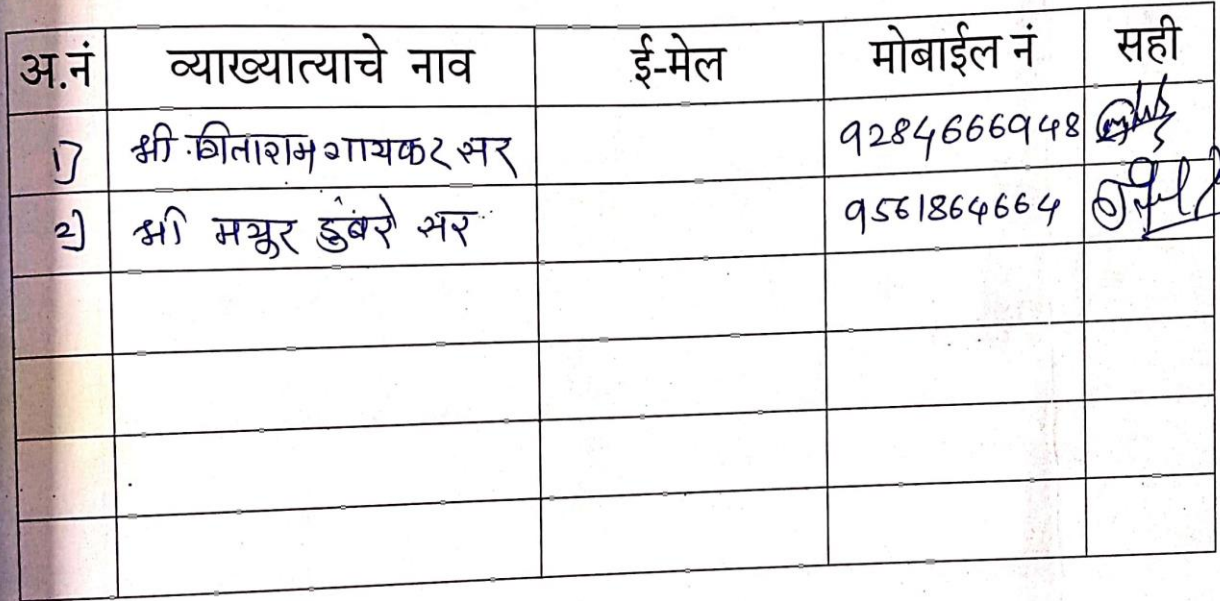 अ.नं व्याख्यात्याचे नाव ई-मेल मोबाईल नं सही
1) श्री. सिताराम गायकर सर 9284666948
2) श्री मयूर डुंबरे सर 9561864664